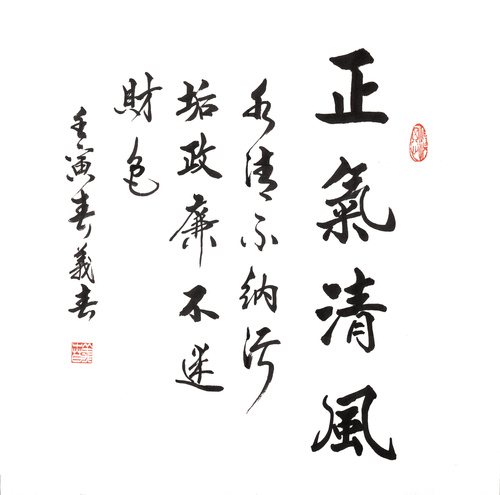 正氣清風
水清不納污
垢政廉不迷
財色
壬寅春義春